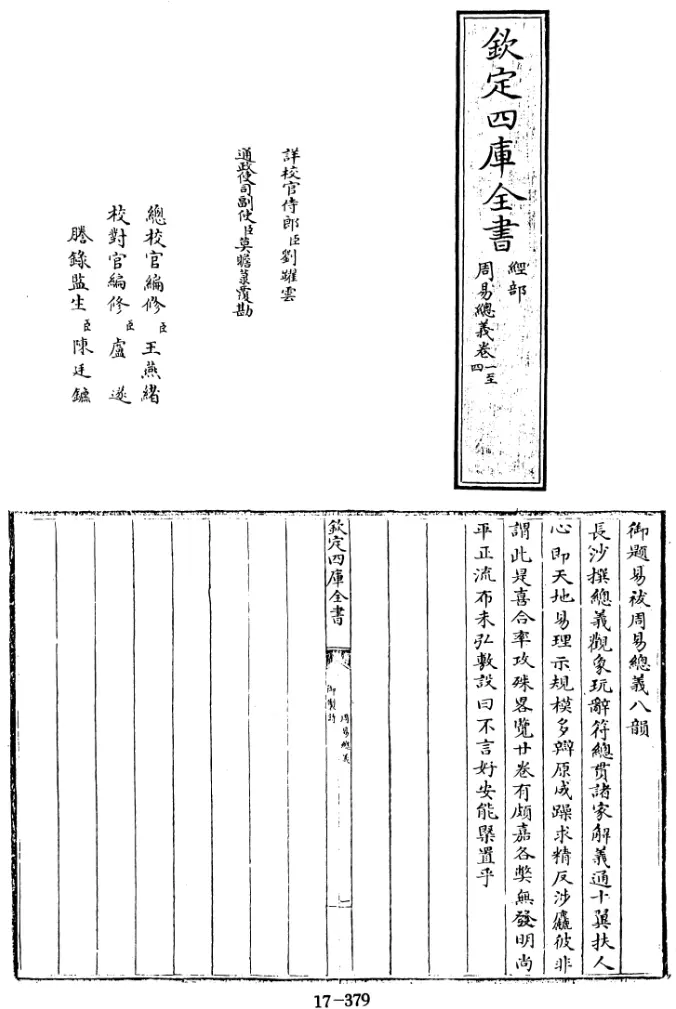 欽定四庫全書
經部
周易總義卷一至四
詳校官侍郎臣劉躍雲
通政使司副使臣莫瞻菉覆勘
總校官編修臣王燕緒
校對官編修臣盧遂
謄錄監生臣陳廷鑣
御題易祓周易總義八韻
長沙撰總義觀象玩辭符總貫諸家解義通十翼扶人
心即天地易理示規模多辨原成躁求精反涉麤彼非
謂此是喜合率攻殊畧覽廿卷有頗嘉各弊無發明尚
平正流布未弘敷設曰不言好安能槩置乎
欽定四庫全書
御製詩
周易總義
一
17-379